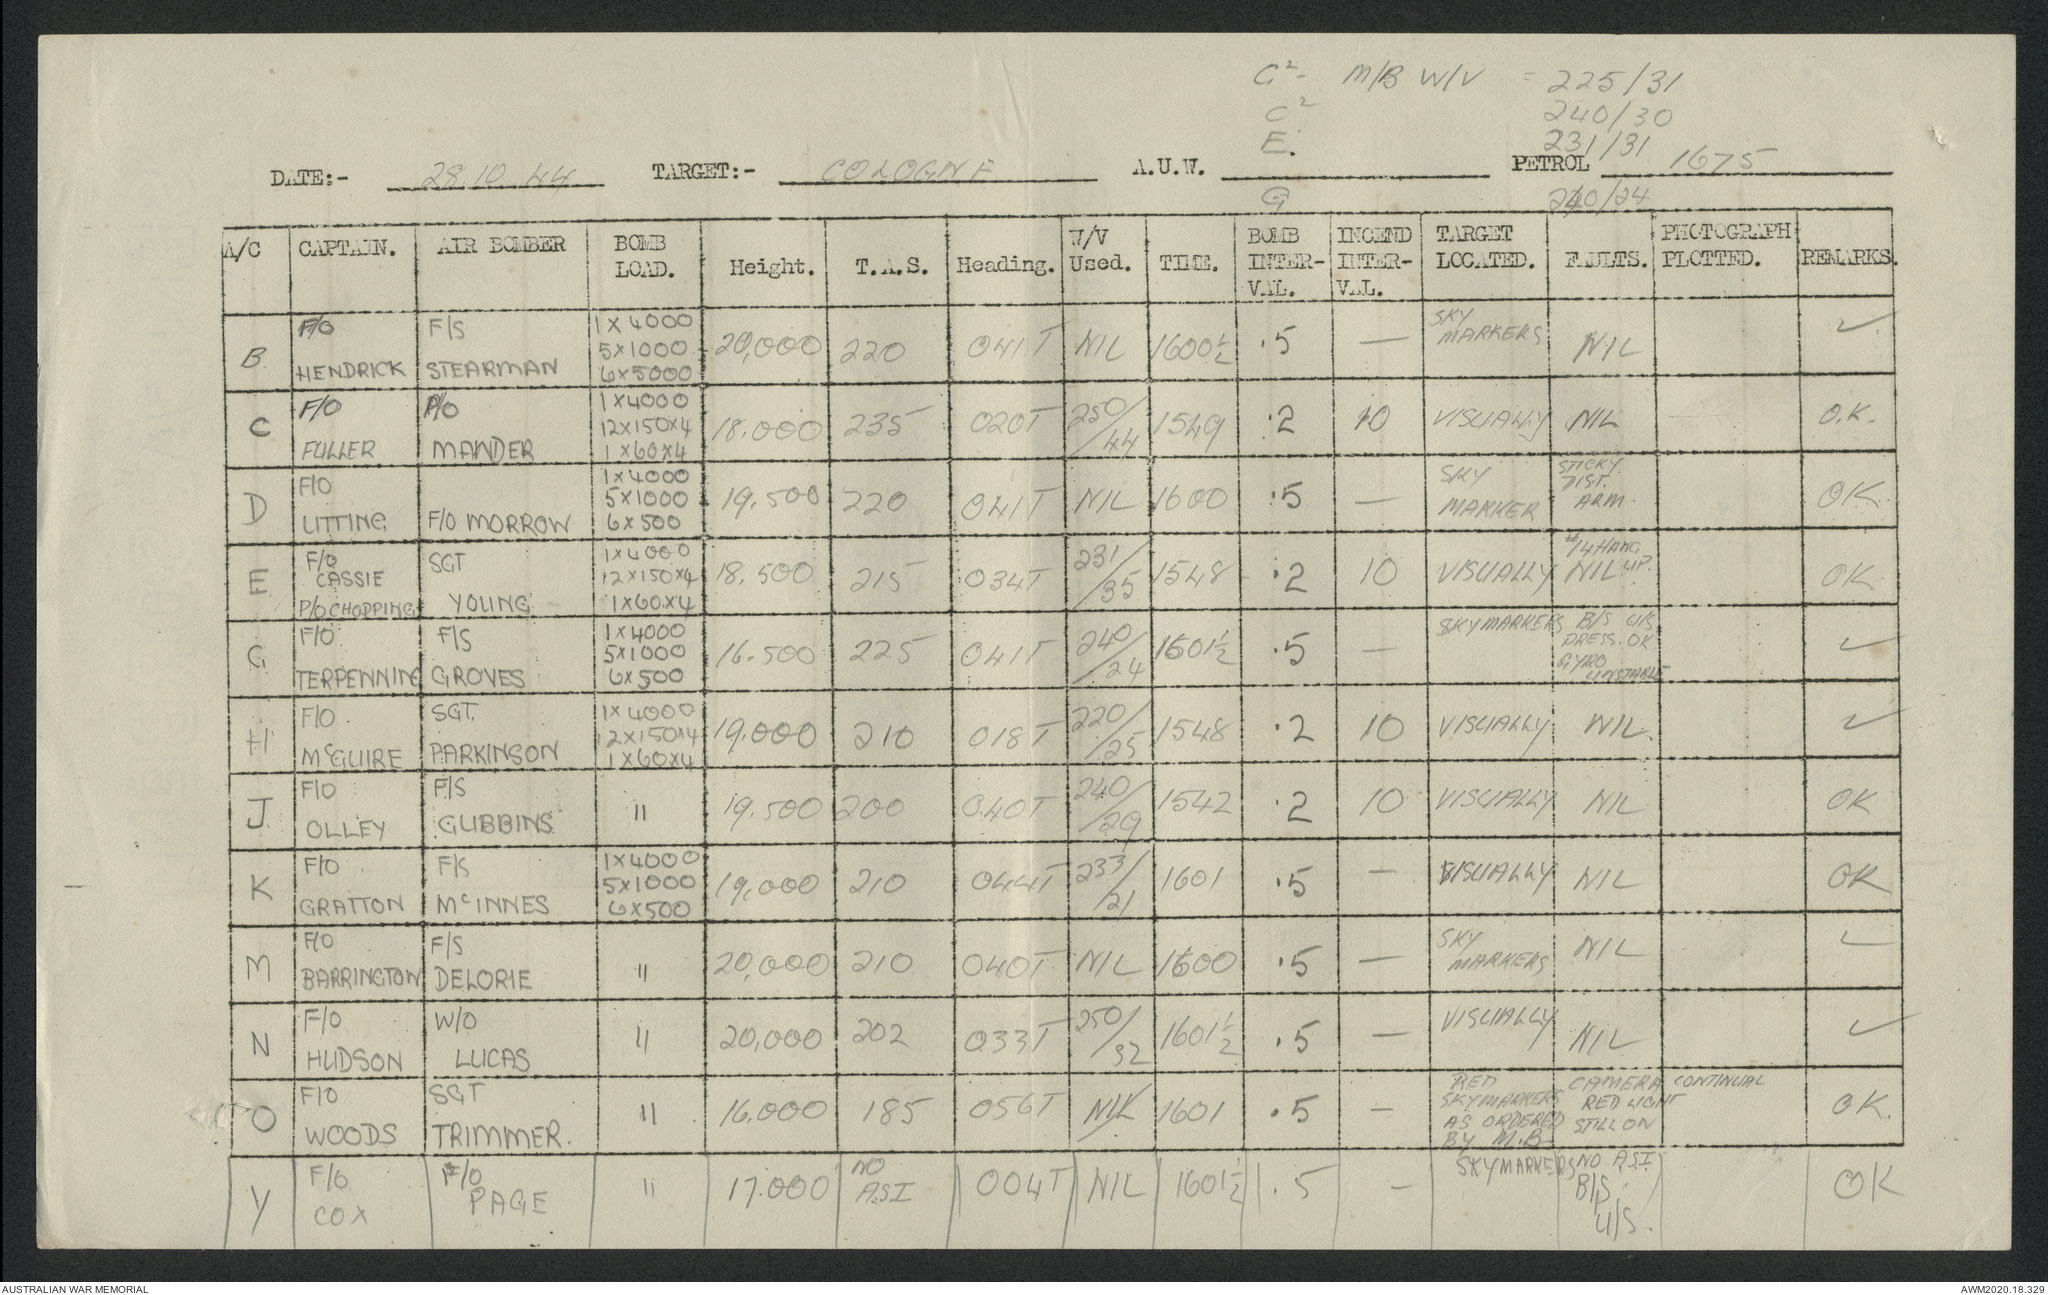 G²- M/B W/V = 225/31
C² 240/30
E. 231/31
G 240/24
DATE:- 28.10.44 TARGET:- COLOGNE A.U.W. PETROL 1675
A/C CAPTAIN. AIR BOMBER BOMB LOAD. Height. T.A.S. Heading. W/V Used. TIME. BOMB INTER-VAL. INCEND INTER-VAL. TARGET LOCATED. FAULTS. PHOTOGRAPH PLOTTED. REMARKS.
B F/O HENDRICK F/S STEARMAN 1 X 4000 5X1000 6X5000 20,000 220 041T NIL 1600½ .5 — SKY MARKERS NIL ✓
C F/O FULLER P/O MANDER 1X4000 12X150X4 1X60X4 18.000 235 020T 250/44 1549 .2 10 VISUALLY NIL O.K.
D F/O LITTING F/O MORROW 1X4000 5X1000 6X500 19.500 220 041T NIL 1600 .5 — SKY MARKER STICKY DIST. ARM. OK
E F/O CASSIE P/O CHOPPING SGT YOUNG 1X4000 12X150X4 1X60X4 18.500 215 034T 231/35 1548 .2 10 VISUALLY #14 HANG UP. NIL OK
G F/O TERPENNING F/S GROVES 1X4000 5X1000 6X500 16.500 225 041T 240/24 1601½ .5 — SKYMARKERS B/S U/S PRESS. OK. GYRO UNSTABLE ✓
H F/O McGUIRE SGT. PARKINSON 1X4000 12X150X4 1X60X4 19.000 210 018T 220/25 1548 .2 10 VISUALLY NIL. ✓
J F/O OLLEY F/S GUBBINS " 19.500 200 040T 240/29 1542 .2 10 VISUALLY NIL OK
K F/O GRATTON F/S McINNES 1X4000 5X1000 6X500 19,000 210 044T 233/21 1601 .5 — VISUALLY NIL OK
M F/O BARRINGTON F/S DELORIE " 20,000 210 040T NIL 1600 .5 — SKY MARKERS NIL ✓
N F/O HUDSON W/O LUCAS " 20,000 202 033T 250/32 1601½ .5 — VISUALLY NIL ✓
O F/O WOODS SGT TRIMMER. " 16.000 185 056T NIL 1601 .5 — RED SKYMARKERS AS ORDERED BY M.B. CAMERA CONTINUAL RED LIGHT STILL ON OK.
Y F/O COX F/O PAGE " 17.000 NO A.S.I 004T NIL 1601½ .5 — SKYMARKERS NO A.S.I B/S. U/S. OK
AUSTRALIAN WAR MEMORIAL AWM2020.18.329